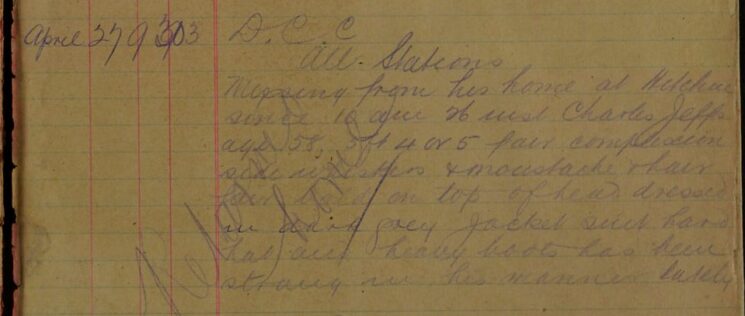 April 27 9 303 D. C. C
All Stations
Missing from his home at
since 10 am 26 inst Charles Jeffs
age 58, 5ft 4 or 5 fair complexion
side whiskers & moustache & hair
fair bald on top of head dressed
in dark grey Jacket suit hard
hat and heavy boots has been
strang in his manner lately
Returned home